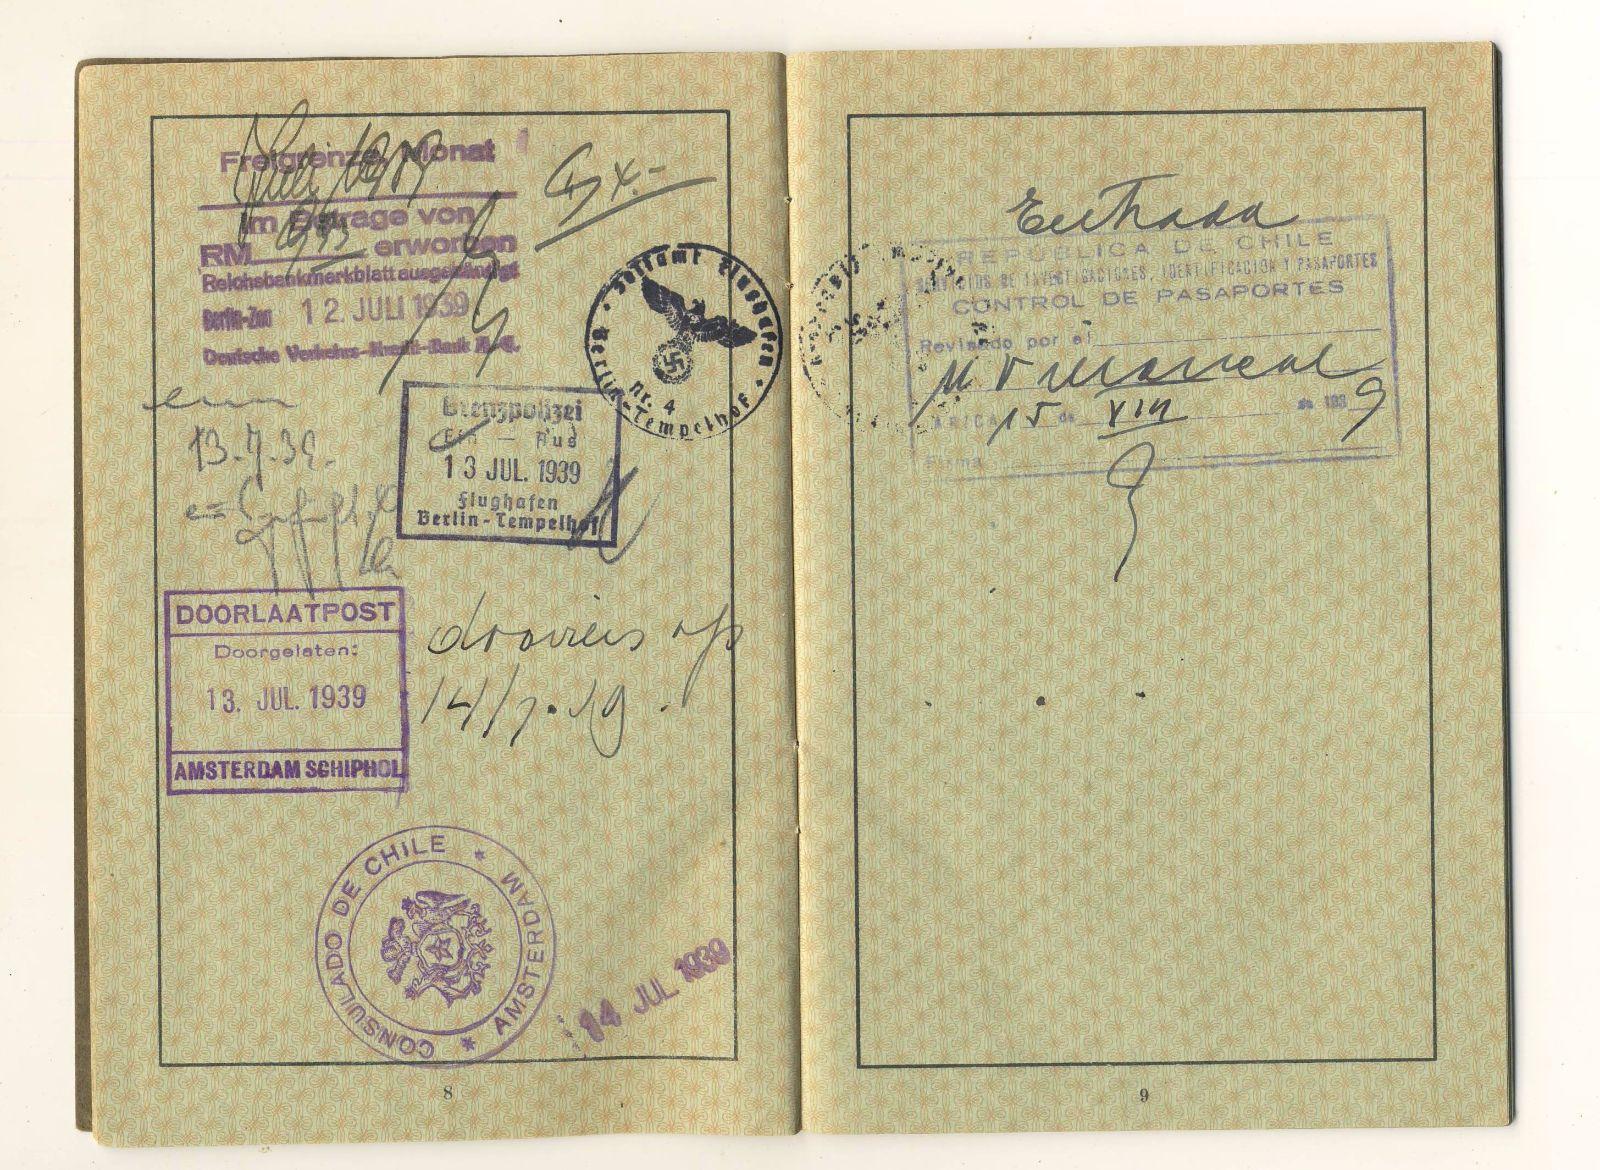 Juli 1939
Freigrenze Monat
im Betrage von
RM erworben
Reichsbankmerkblatt ausgehändigt
Berlin-Zoo 12. JULI 1939
Deutsche Verkehrs-Kredit-Bank A.G.
Zollamt Flughafen
Nr. 4
Berlin-Tempelhof
13.7.39.
Grenzpolizei
Ein — Aus
13 JUL. 1939
Flughafen
Berlin-Tempelhof
DOORLAATPOST
Doorgelaten:
13. JUL. 1939
AMSTERDAM SCHIPHOL
op
CONSULADO DE CHILE * AMSTERDAM *
14 JUL 1939
8
Entrada
REPUBLICA DE CHILE
SERVICIOS DE INVESTIGACIONES, IDENTIFICACION Y PASAPORTES
CONTROL DE PASAPORTES
Revisado por el
ARICA 15 de VIII de 1939
Firma
9